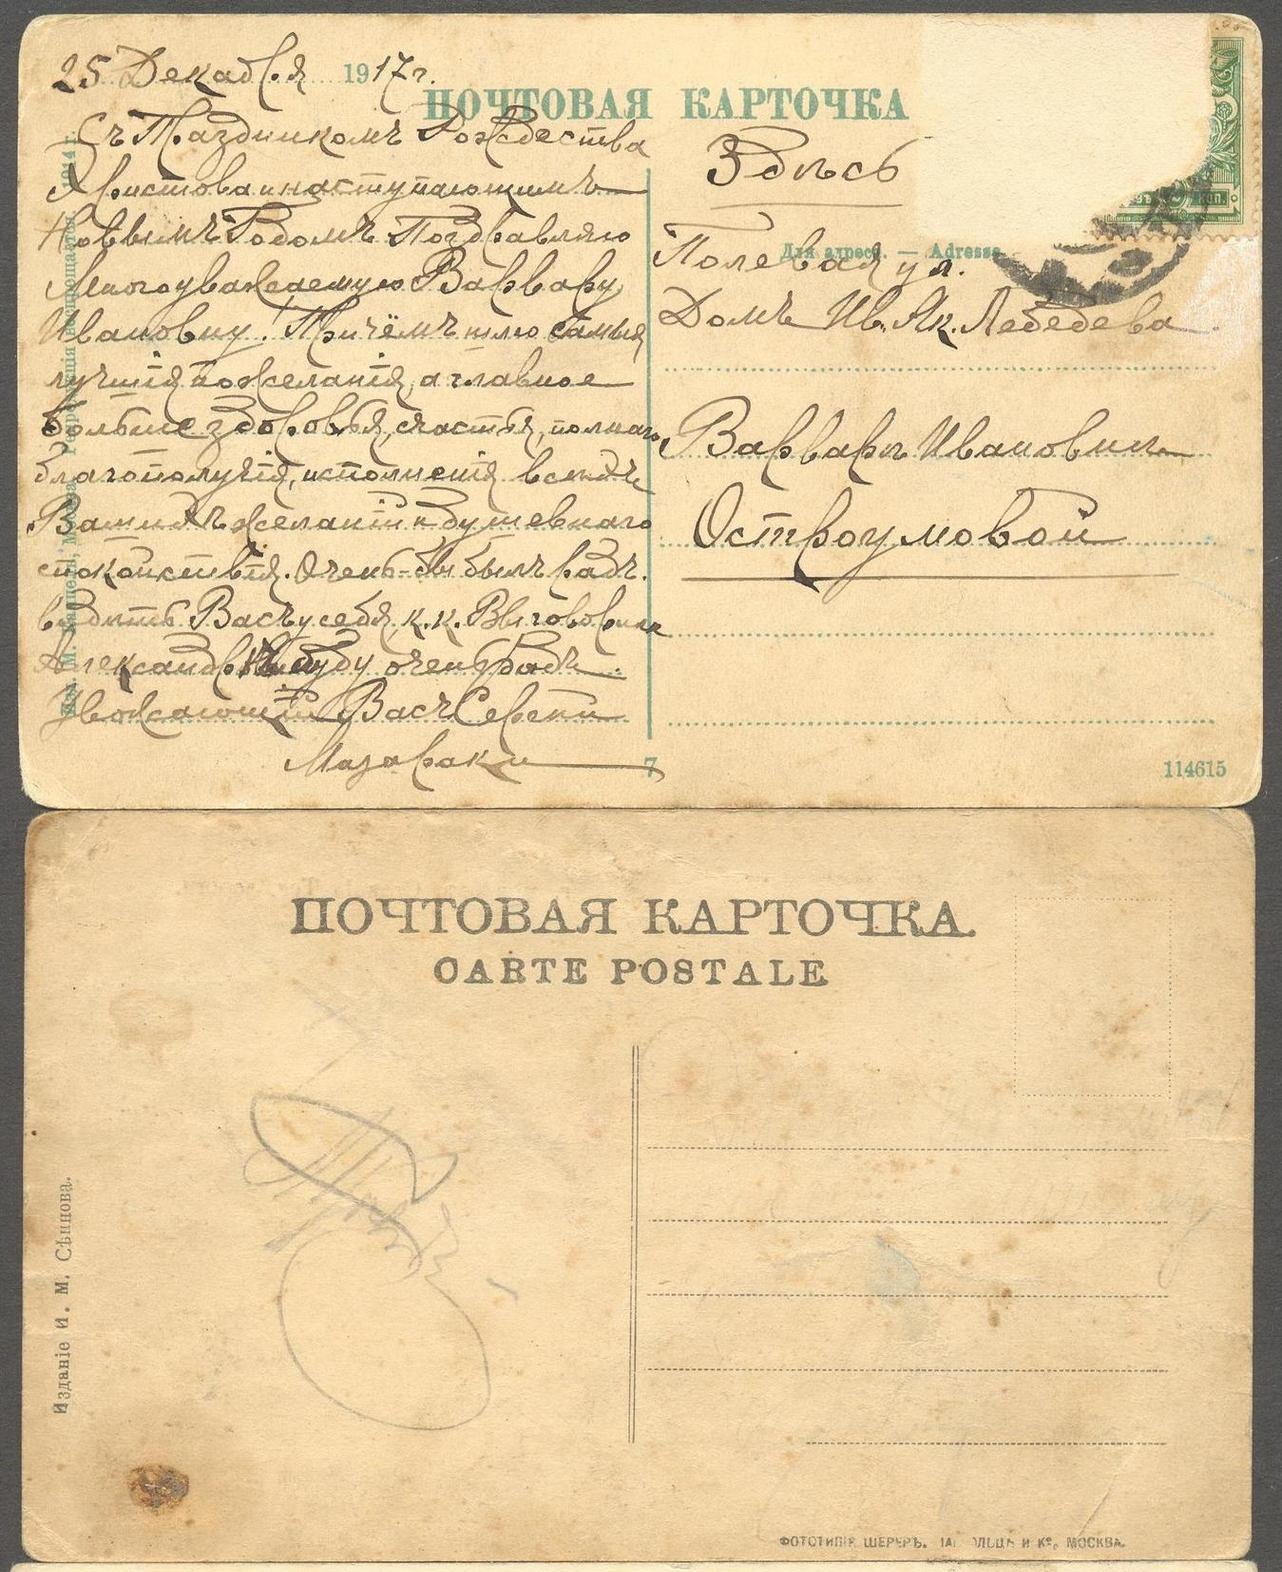 25 Декабря 1917 г.
ПОЧТОВАЯ КАРТОЧКА
Съ Праздникомъ Рождества
Христова и наступающимъ
Новымъ Годомъ Поздравляю
Многоуважаемую Варвару
Ивановну! Причёмъ шлю самыя
лучшія пожеланія, а главное
больше здоровья, счастья, полнаго
благополучія, исполненія всехъ
Вашихъ желаній и душевнаго
спокойствія. Очень-бы былъ радъ.
видить Васъ у себя, к.к. Вы говорили
Александр буду очень радъ.
Уважающій Васъ Сергѣй
Мазараки
Здѣсь
Для адреса. — Adresse
Полевая ул.
Домъ Ив. Як. Лебедева.
Варварѣ Ивановнѣ
Остроумовой
7
114615
1914 г.
ПОЧТОВАЯ КАРТОЧКА.
CARTE POSTALE
Изданіе И. М. Сѣинова.
ФОТОТИПІЯ ШЕРЕРЪ, И Кº, МОСКВА.